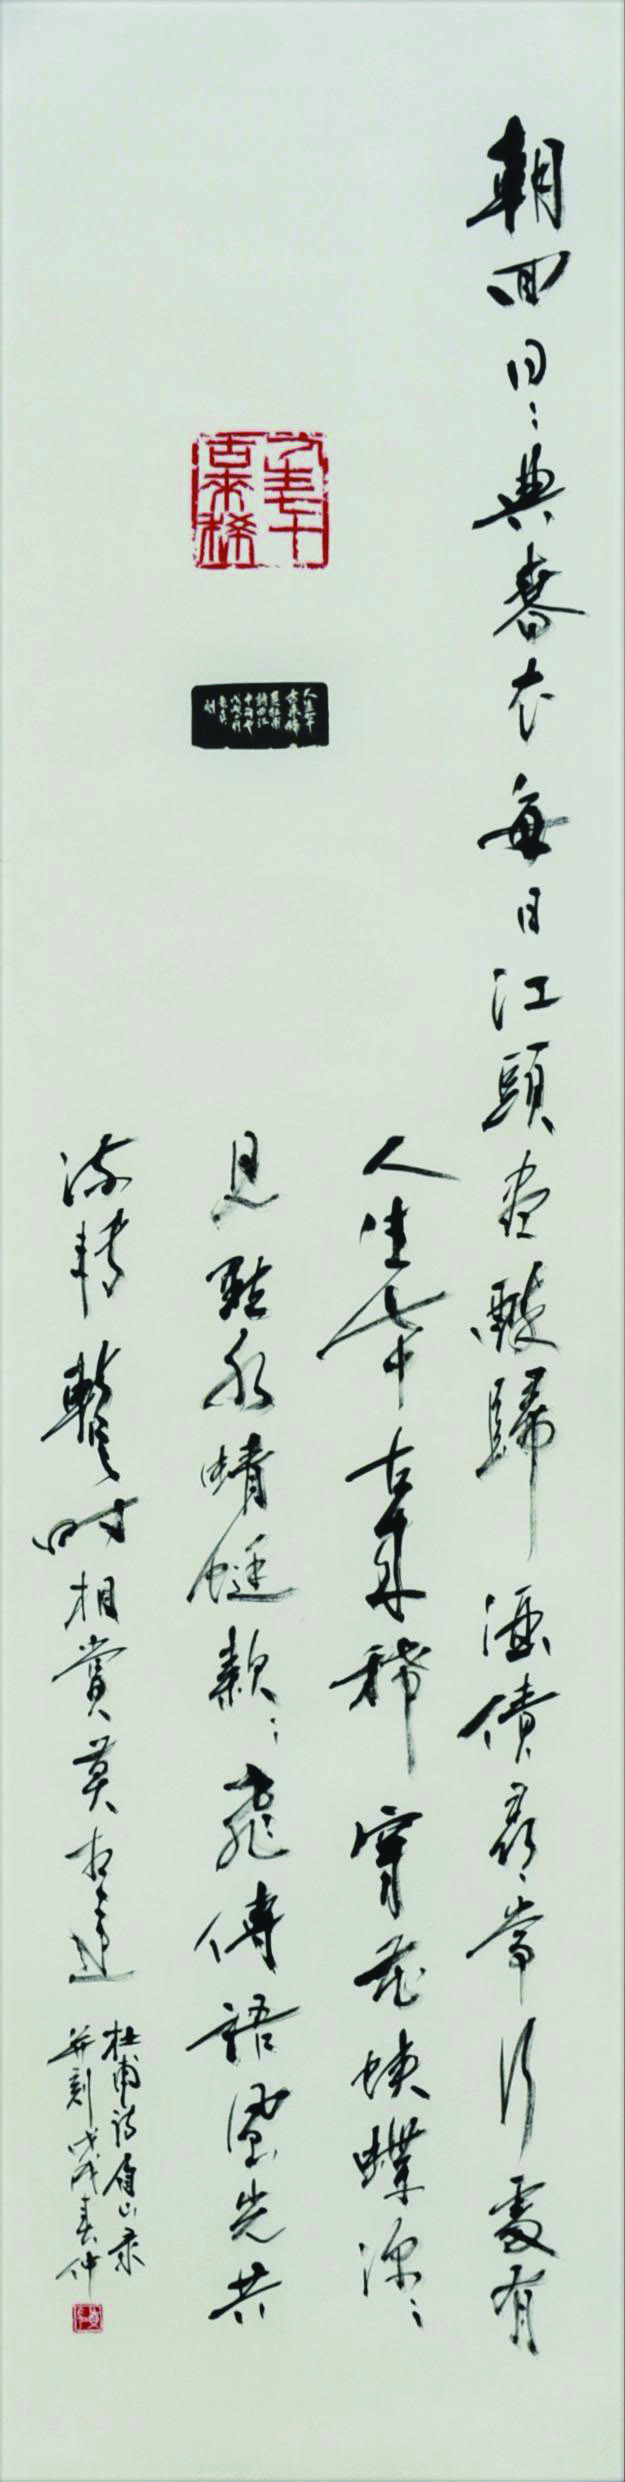 朝回日々典春衣每日江頭盡醉歸酒債尋常行處有
人生七十古來稀穿花蛺蝶深々
見點水蜻蜓款々飛傳語風光共
流轉暫時相賞莫相違
杜甫詩眉山录
并刻戊戌春仲
人生七十
古來稀